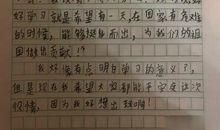 好学习就是希望有一天,在国家有危难
的时候,能够挺身而出,为我们的祖
国做出贡献!"
我好像有点明白学习的意义了,
但是现在我希望大家都能平安度过这次
疫情,因为我好想出去玩啊!